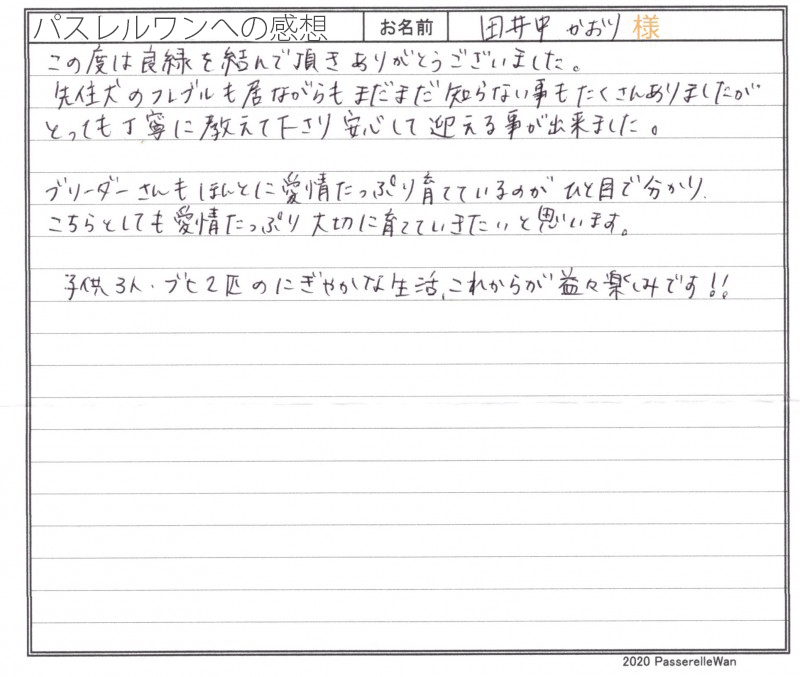 パスレルワンへの感想 お名前 田井中 かおり 様
この度は良縁を結んで頂きありがとうございました。
先住犬のフレブルも居ながらもまだまだ知らない事もたくさんありましたが
とっても丁寧に教えて下さり安心して迎える事が出来ました。
ブリーダーさんもほんとに愛情たっぷり育てているのがひと目で分かり、
こちらとしても愛情たっぷり大切に育てていきたいと思います。
子供3人・ブヒ2匹のにぎやかな生活、これからが益々楽しみです!!
2020 PasserelleWan